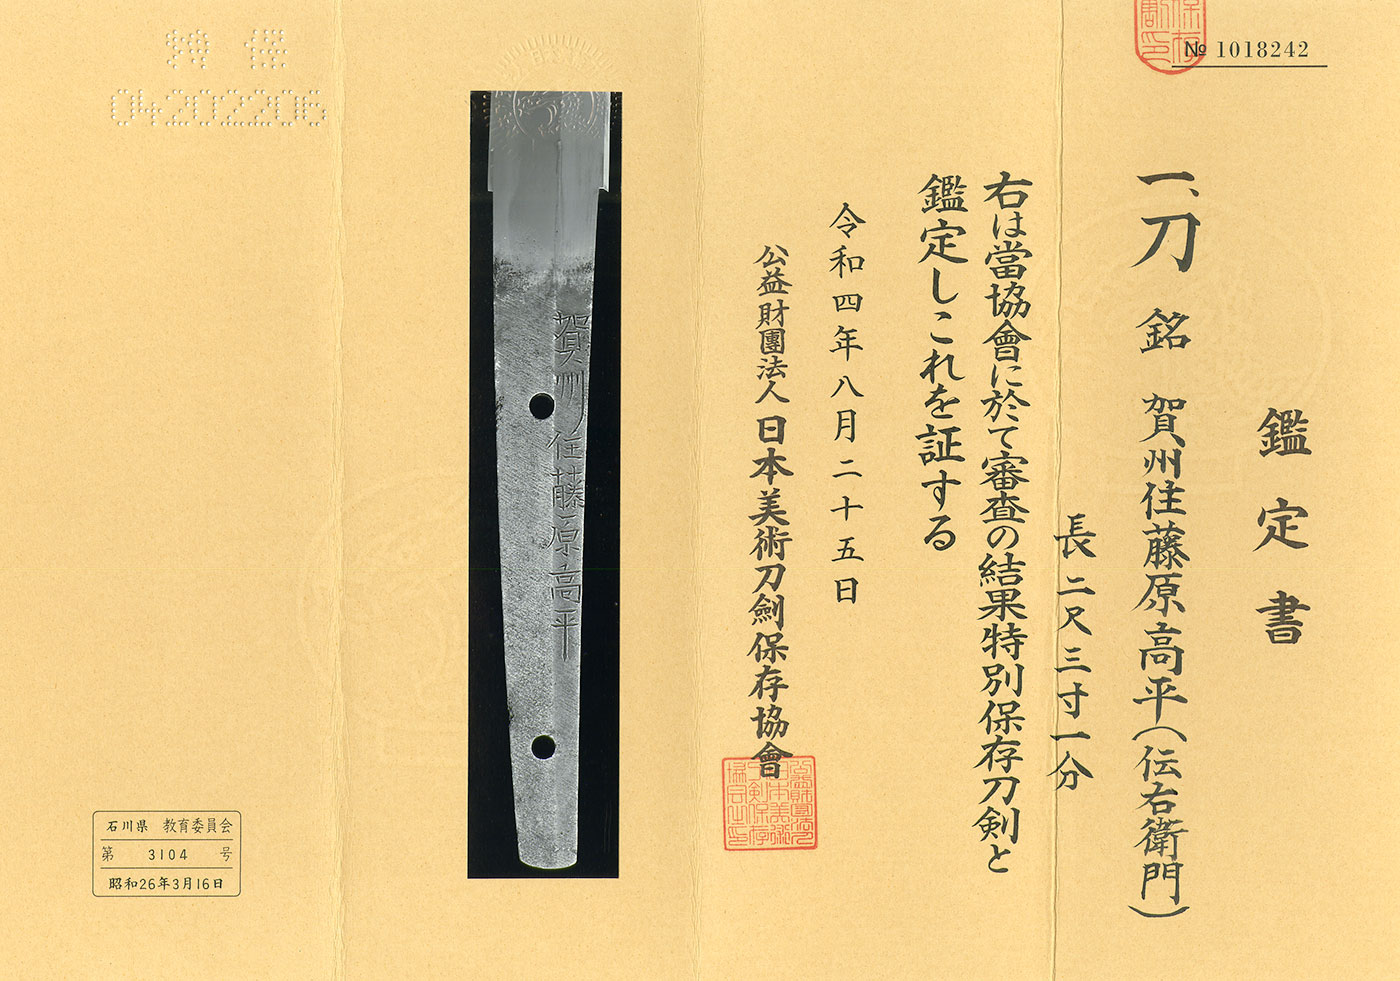 № 1018242
鑑定書
一、刀 銘 賀州住藤原高平(伝右衛門)
長二尺三寸一分
右は當協會に於て審査の結果特別保存刀剣と
鑑定しこれを証する
令和四年八月二十五日
公益財團法人日本美術刀劍保存協會
賀州住藤原高平
04202206
石川県 教育委員会
第 3104 号
昭和26年3月16日